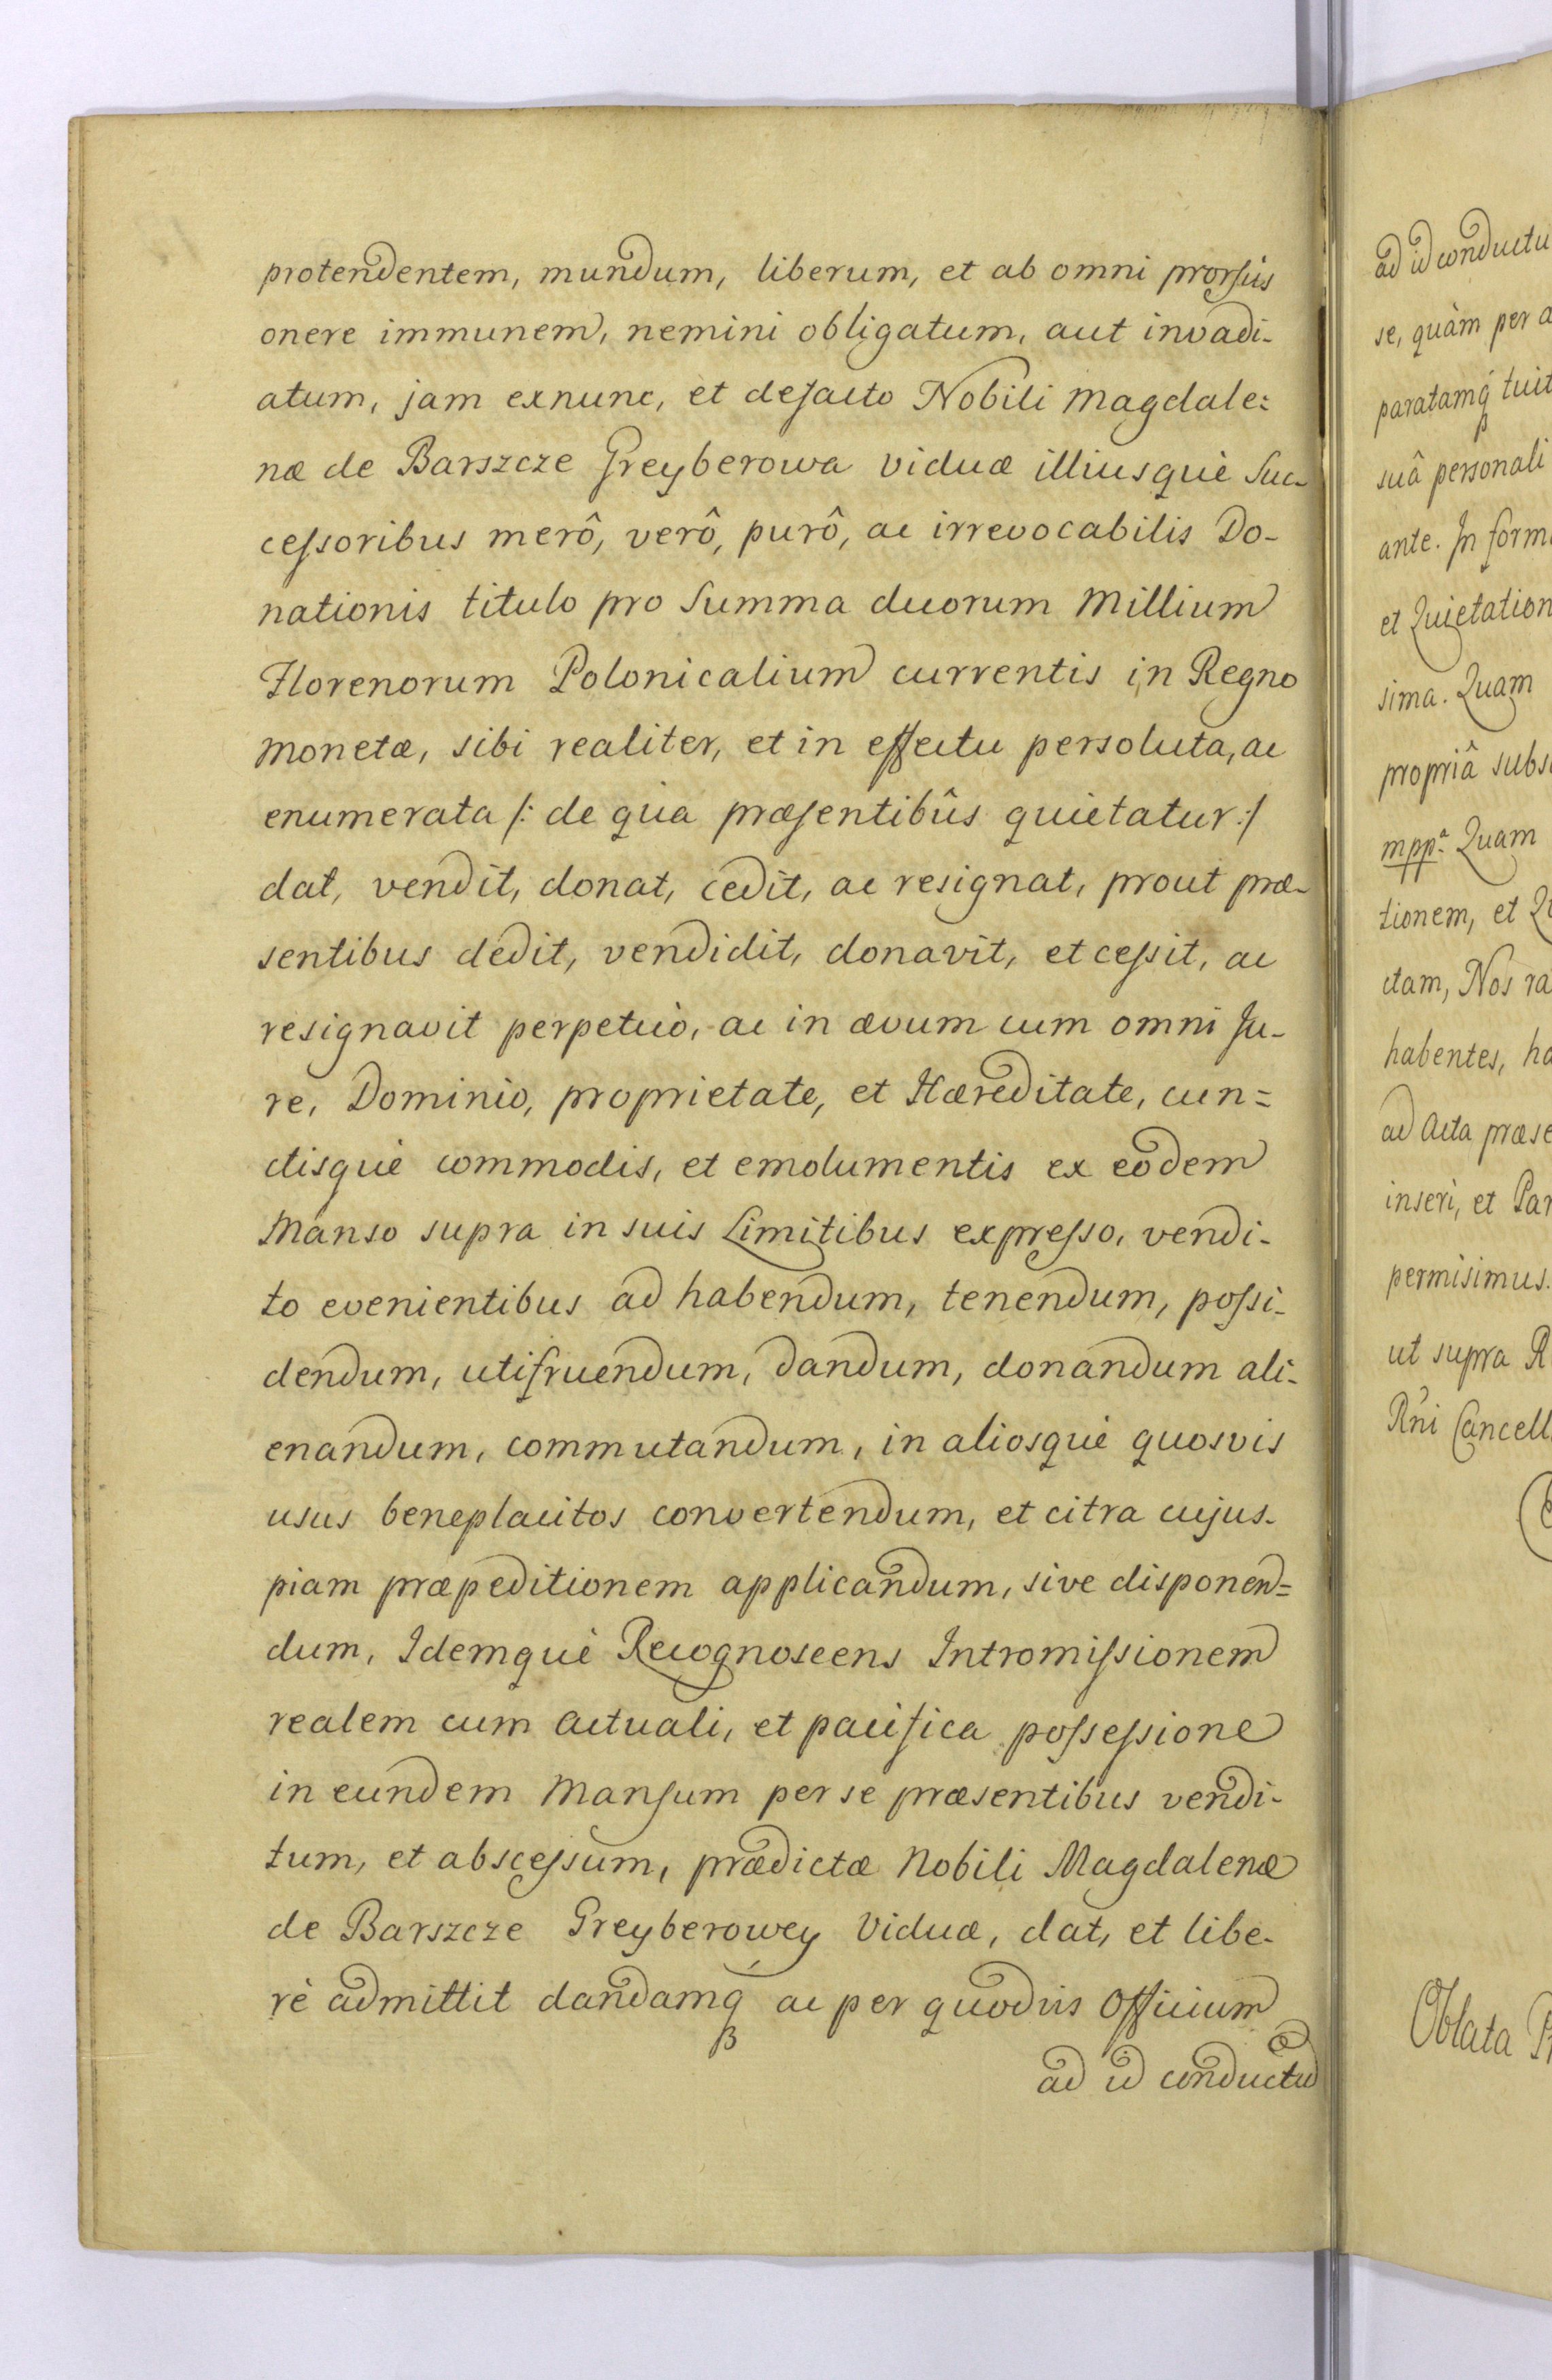 protendentem, mundum, liberum, et ab omni prorsùs
onere immunem, nemini obligatum, aut invadi-
atum, jam exnunc, et defacto Nobili Magdale=
næ de Barszcze Greyberowa viduæ illiusquè Suc-
cessoribus merô, verô, purô, ac irrevocabilis Do-
nationis titulo pro Summa duorum Millium
Florenorum Polonicalium currentis in Regno
Monetæ, sibi realiter, et in effectu persoluta, ac
enumerata /: de qua præsentibûs quietatur :/
dat, vendit, donat, cedit, ac resignat, prout præ-
sentibus dedit, vendidit, donavit, et cessit, ac
resignavit perpetuò, ac in ævum cum omni Ju-
re, Dominio, proprietate, et Hæreditate, cun=
ctisquè commodis, et emolumentis ex eodem
Manso supra in suis Limitibus expresso, vendi-
to evenientibus ad habendum, tenendum, possi-
dendum, utifruendum, dandum, donandum ali-
enandum, commutandum, in aliosquè quosvis
usus beneplacitos convertendum, et citra cujus-
piam præpeditionem applicandum, sive disponen=
dum, Idemquè Recognoscens Intromissionem
realem cum actuali, et pacifica possessione
in eundem Mansum per se præsentibus vendi-
tum, et abscessum, prædictæ Nobili Magdalenæ
de Barszcze Greyberowey Viduæ, dat, et libe-
rè admittit dandamq́ß ac per quodvis Officium
ad id conductū
ad id conductu
se, quàm per a
paratamq́ß tuit
suâ personali
ante. In form
et Quietation
sima. Quam
propriâ subs
mppª. Quam
tionem, et Q
ctam, Nos ra
habentes, ha
ad Acta præse
inseri, et Par
permisimus.
ut supra R
Rńi Cancell
Oblata